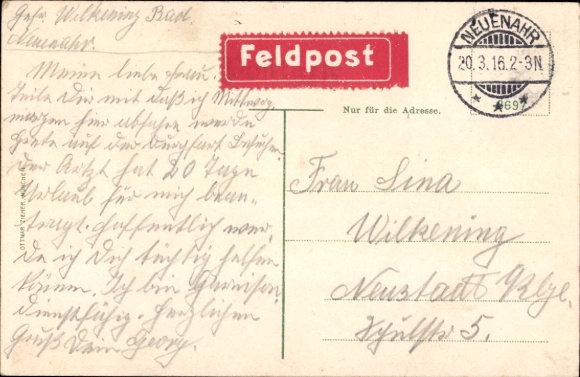 Gefr. Wilkening Bad
Neuenahr.
Meine liebe Frau.
Teile Dir mit daß ich Mittwoch
morgen hier abfahre werde
heute auf der
Der Artzt hat 20 Tage
Urlaub für mich bean-
tragt. Hoffentlich wer-
de ich Dich tüchtig helfen
können. Ich bin Garnison
dienstfähig. Herzlichen
Gruß Dein Georg.
OTTMAR ZIEHER, MÜNCHEN
Feldpost
NEUENAHR
20.3.16.2-3N
Nur für die Adresse.
Frau Lina
Wilkening
Neustadt a/Rbge.
Schulstr 5.